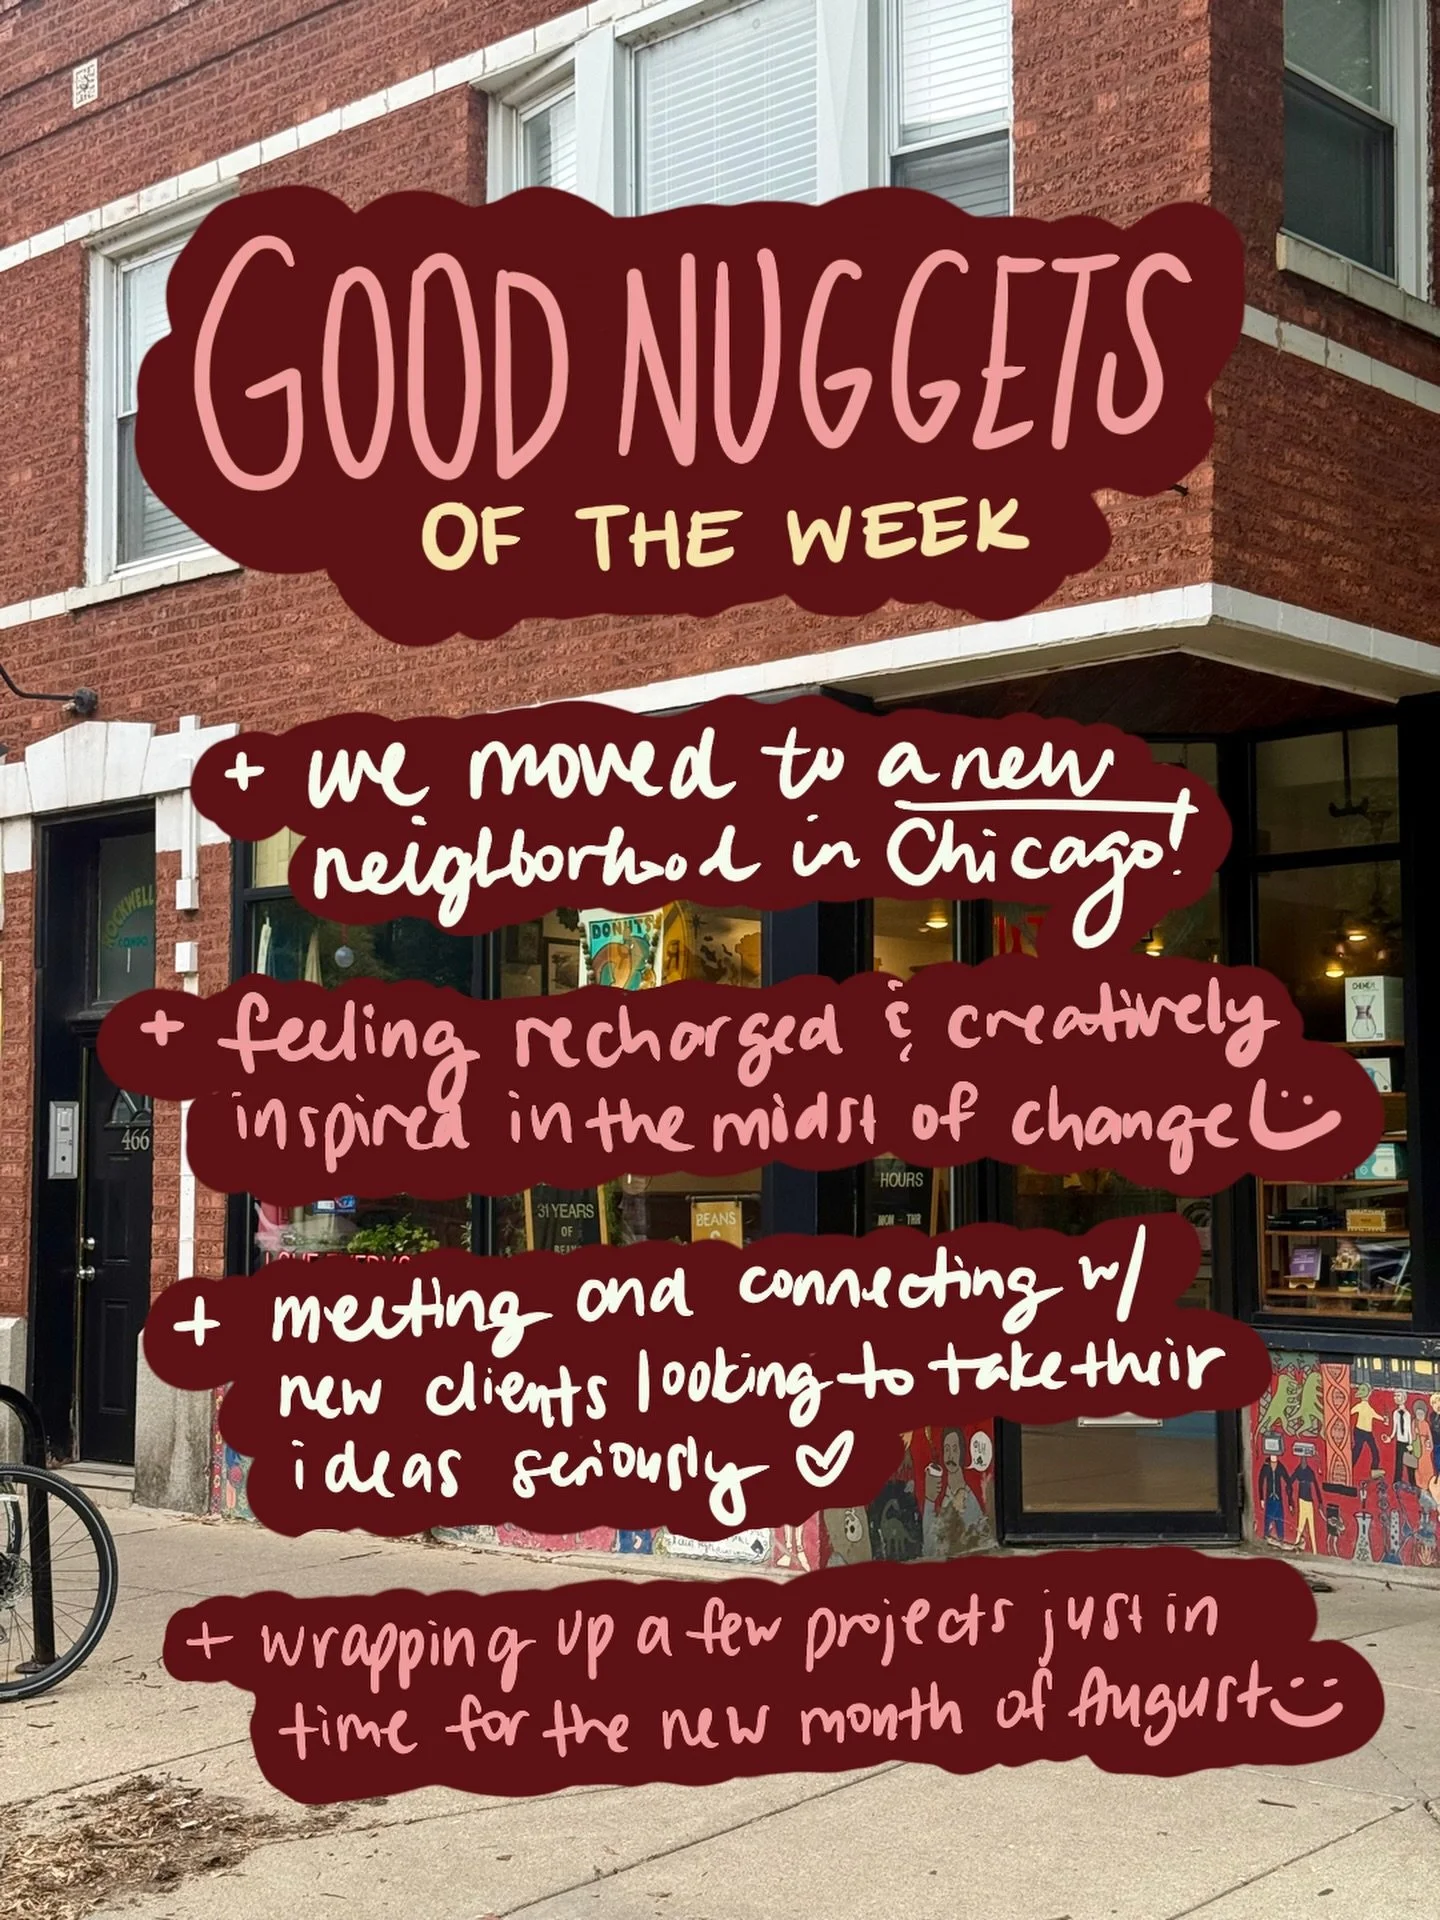 GOOD NUGGETS
OF THE WEEK
+ we moved to a new
neighborhood in Chicago!
+ feeling recharged & creatively
inspired in the midst of change
+ meeting and connecting w/
new clients looking to take their
ideas seriously ♡
+ wrapping up a few projects just in
time for the new month of August
ROCKWELL
CONDO
466
DONUTS
CHEMEX
HOURS
MON - THR
31 YEARS
OF
BEANS